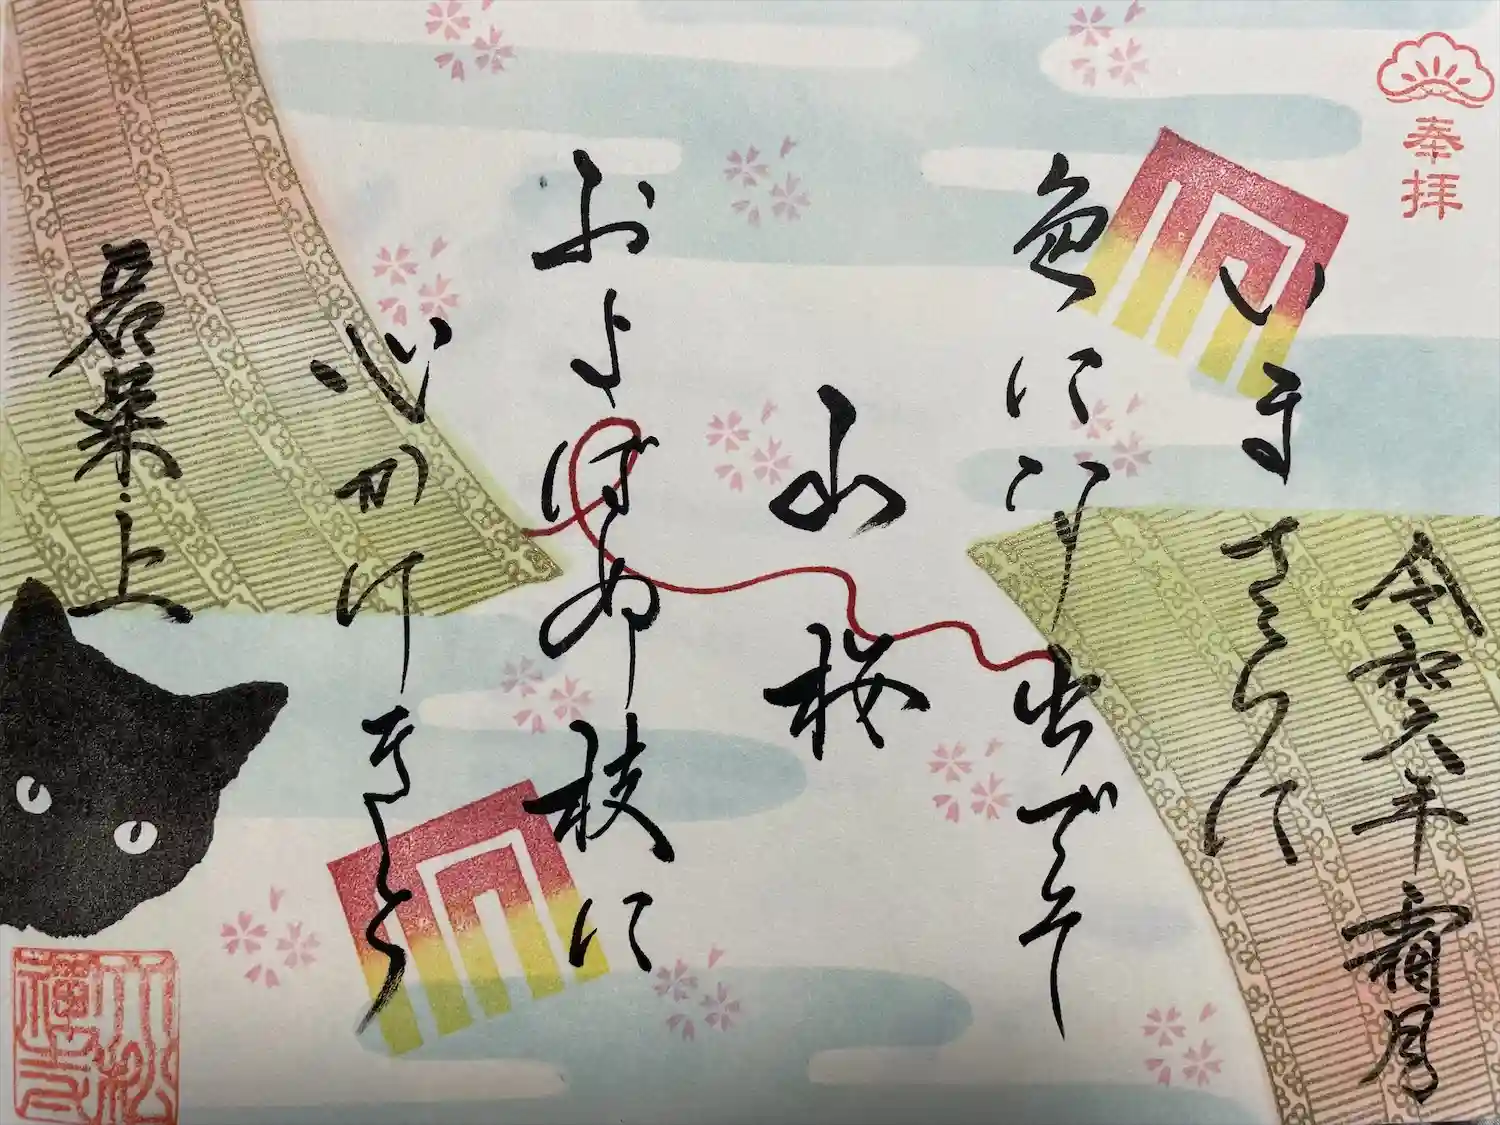 奉拝
令和六年霜月
いまさらに
色にな出でそ
山桜
およばぬ枝に
心かけきと
若菜上